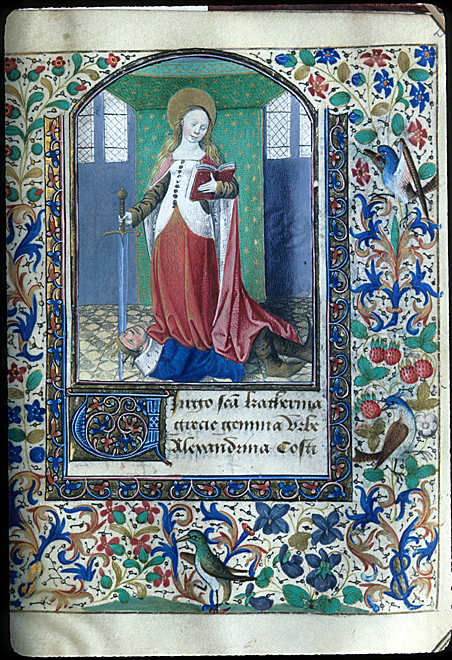 Virgo scā katherina
grecie gemma vrbe
Alexandrina Costi